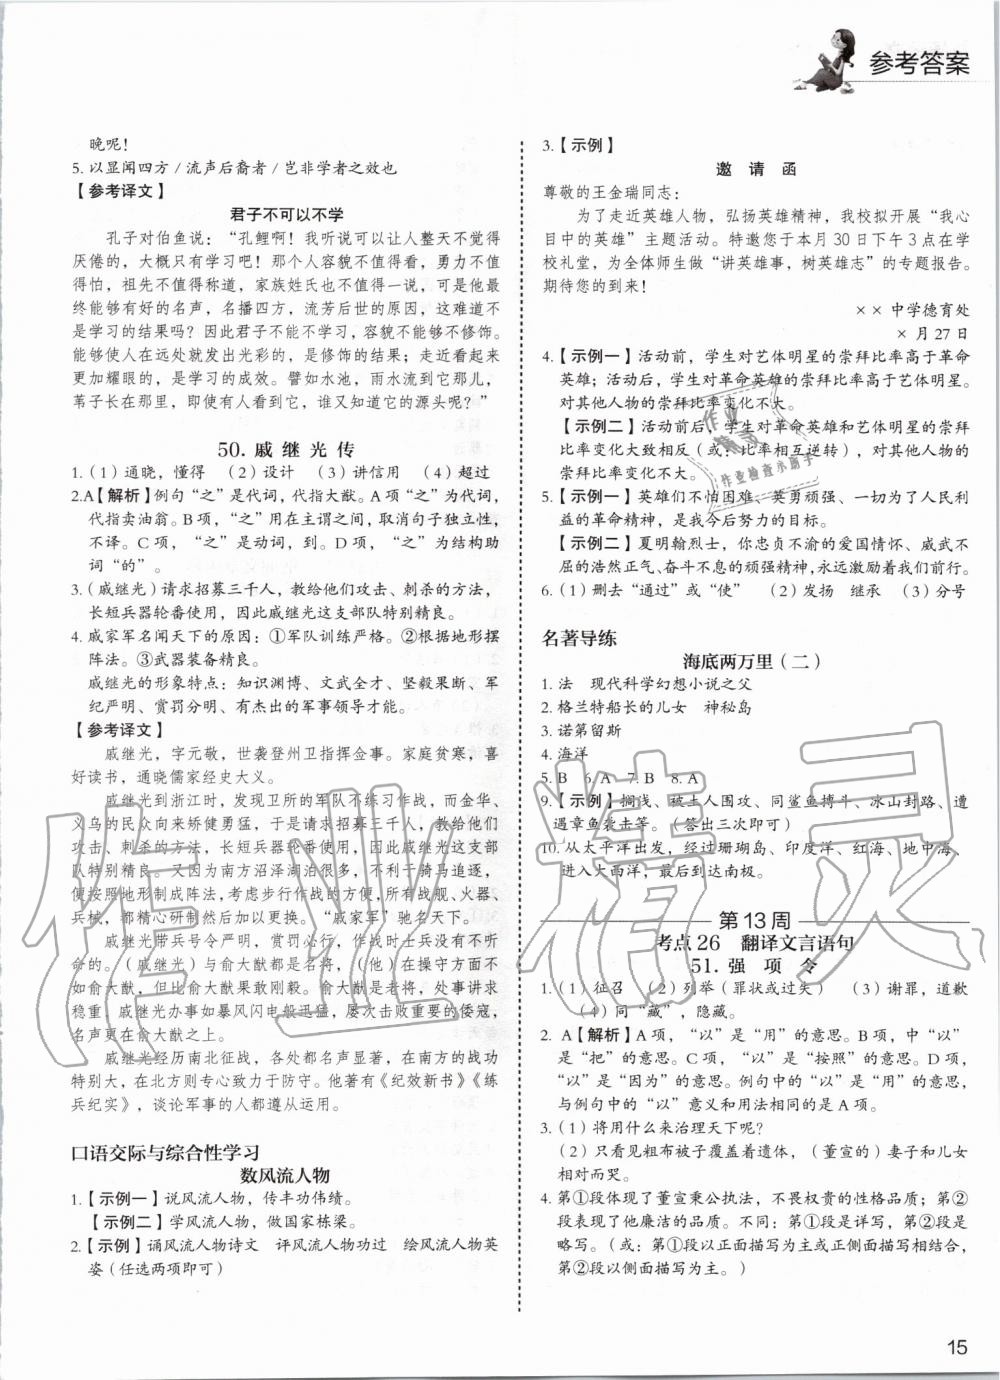 参考答案
晚呢！
5. 以显闻四方/流声后裔者/岂非学者之效也
【参考译文】
君子不可以不学
孔子对伯鱼说：“孔鲤啊！我听说可以让人整天不觉得
厌倦的，大概只有学习了吧！一个人容貌不值得看，勇力不值
得怕，祖先不值得称道，家族姓氏也不值得一提，可是他最终
能够有好的名声，名播四方，流芳后世的原因，这难道不
是学习的结果吗？因此君子不能不学习，容貌不能够不修饰。
能够使人在远处就发出光彩的，是修饰的结果；走近看会
更加耀眼的，是学习的成效。譬如水池，雨水流到它那儿，
苇子长在那里，即使有人看到它，谁又知道它的源头呢？”
50. 戚继光传
1.（1）通晓，懂得 （2）设计 （3）讲信用 （4）超过
2.A【解析】例句“之”是代词，代指大猷。A项“之”为代词，
代指卖油翁。B项，“之”用在主谓之间，取消句子独立性，
不译。C项，“之”是动词，到。D项，“之”为结构助
词“的”。
3.（戚继光）请求招募三千人，教给他们攻击、刺杀的方法，
长短兵器轮番使用，因此戚继光这支部队特别精良。
4. 戚家军名闻天下的原因：①军队训练严格。②根据地形摆
阵法。③武器装备精良。
戚继光的形象特点：知识渊博、文武全才、坚毅果断、军
纪严明、赏罚分明、有杰出的军事领导才能。
【参考译文】
戚继光，字元敬，世袭登州卫指挥佥事。家庭贫寒，喜
好读书，通晓儒家经史大义。
戚继光到浙江时，发现卫所的军队不练习作战，而金华、
义乌的民众向来矫健勇猛，于是请求招募三千人，教给他们
攻击、刺杀的方法，长短兵器轮番使用，因此戚继光这支
部队特别精良。又因为南方沼泽湖泊很多，不利于骑马追逐，
便按照地形制成阵法，考虑步行作战的方便，所有战舰、火器、
兵械，都精心研制然后使用它。“戚家军”驰名天下。
戚继光带兵号令严明，赏罚公正，作战时士兵没有不听
命的。（戚继光）与俞大猷都是名将，（他）在操守方面不
如俞大猷，但比俞大猷果敢刚毅。俞大猷是老将，处事讲求
稳重，戚继光办事如暴风闪电般迅猛，屡次击败重要的倭寇，
名声更在俞大猷之上。
戚继光经历南北征战，各处都名声显著，在南方的战功
特别大，在北方则专心致力于防守。他著有《纪效新书》《练
兵纪实》，谈论军事的人都遵从运用。
口语交际与综合性学习
数风流人物
1.【示例一】说风流人物，传丰功伟绩。
【示例二】学风流人物，做国家栋梁。
2.【示例】诵风流人物诗文 评风流人物功过 绘风流人物英
姿（任选两项即可）
3.【示例】
邀请函
尊敬的王金瑞同志：
为了走近英雄人物，弘扬英雄精神，我校拟开展“我心
目中的英雄”主题活动。特邀您于本月30日下午3点在学
校礼堂，为全体师生做“讲英雄事，树英雄志”的专题报告。
期待您的到来！
××中学德育处
×月27日
4.【示例一】活动前，学生对艺体明星的崇拜比率高于革命
英雄；活动后，学生对革命英雄的崇拜比率高于艺体明星。
对其他人物的崇拜比率变化不大。
【示例二】活动前后，学生对革命英雄和艺体明星的崇拜
比率变化大致相反（或：比率相互逆转），对其他人物的
崇拜比率变化不大。
5.【示例一】英雄们不怕困难、英勇顽强、一切为了人民利
益的革命精神，是我今后努力的目标。
【示例二】夏明翰烈士，你忠贞不渝的爱国情怀、威武不
屈的浩然正气、奋斗不息的精神，永远激励着我们前行。
6.（1）删去“通过”或“使” （2）发扬 继承 （3）分号
名著导练
海底两万里（二）
1. 法 现代科学幻想小说之父
2. 格兰特船长的儿女 神秘岛
3. 诺第留斯
4. 海洋
5. B 6. A 7. B 8. A
9.【示例】搁浅、被土人围攻、同鲨鱼搏斗、冰山封路、遭
遇章鱼袭击等。（答出三次即可）
10. 从太平洋出发，经过珊瑚岛、印度洋、红海、地中海、
进入大西洋；最后到达南极。
第13周
考点26 翻译文言语句
51. 强项令
1.（1）征召 （2）列举（罪状或过失） （3）谢罪，道歉
（4）同“藏”，隐藏。
2. A【解析】A项，“以”是“用”的意思。B项，中“以”
是“把”的意思。C项，“以”是“按照”的意思。D项，
“以”是“因为”的意思。例句中的“以”是“用”的意思，
与例句中的“以”意义和用法相同的是A项。
3.（1）将用什么来治理天下呢？
（2）只看见粗布被子覆盖着遗体，（董宣的）妻子和儿女
相对而哭。
4. 第①段体现了董宣秉公执法，不畏权贵的性格品质；第②
段表现了他廉洁的品质。不同：第①段是详写，第②段是
略写。（或：第①段以正面描写为主或正侧面描写相结合，
第②段以侧面描写为主。）
作业精灵
作业
精灵
作业检查小助手
15